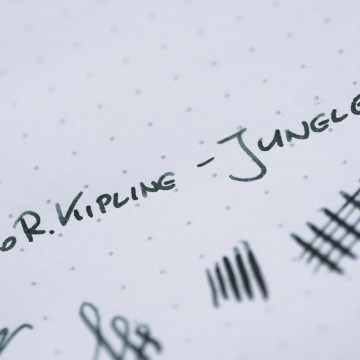 R. KIPLING - JUNGLE